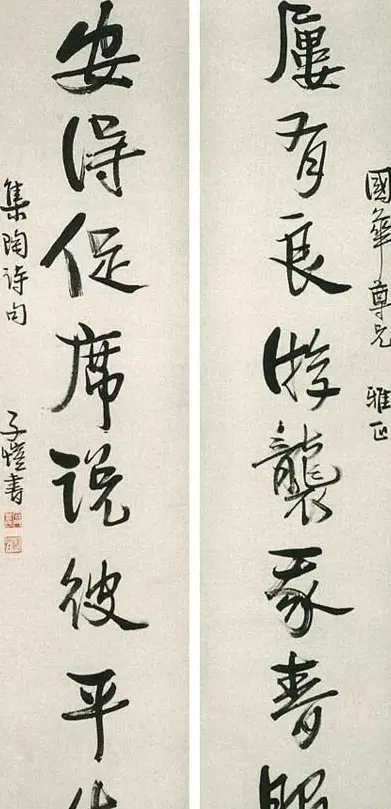 國華尊兄 雅正
屢有良游襲我春
安得促席说彼平
集陶诗句 子愷書